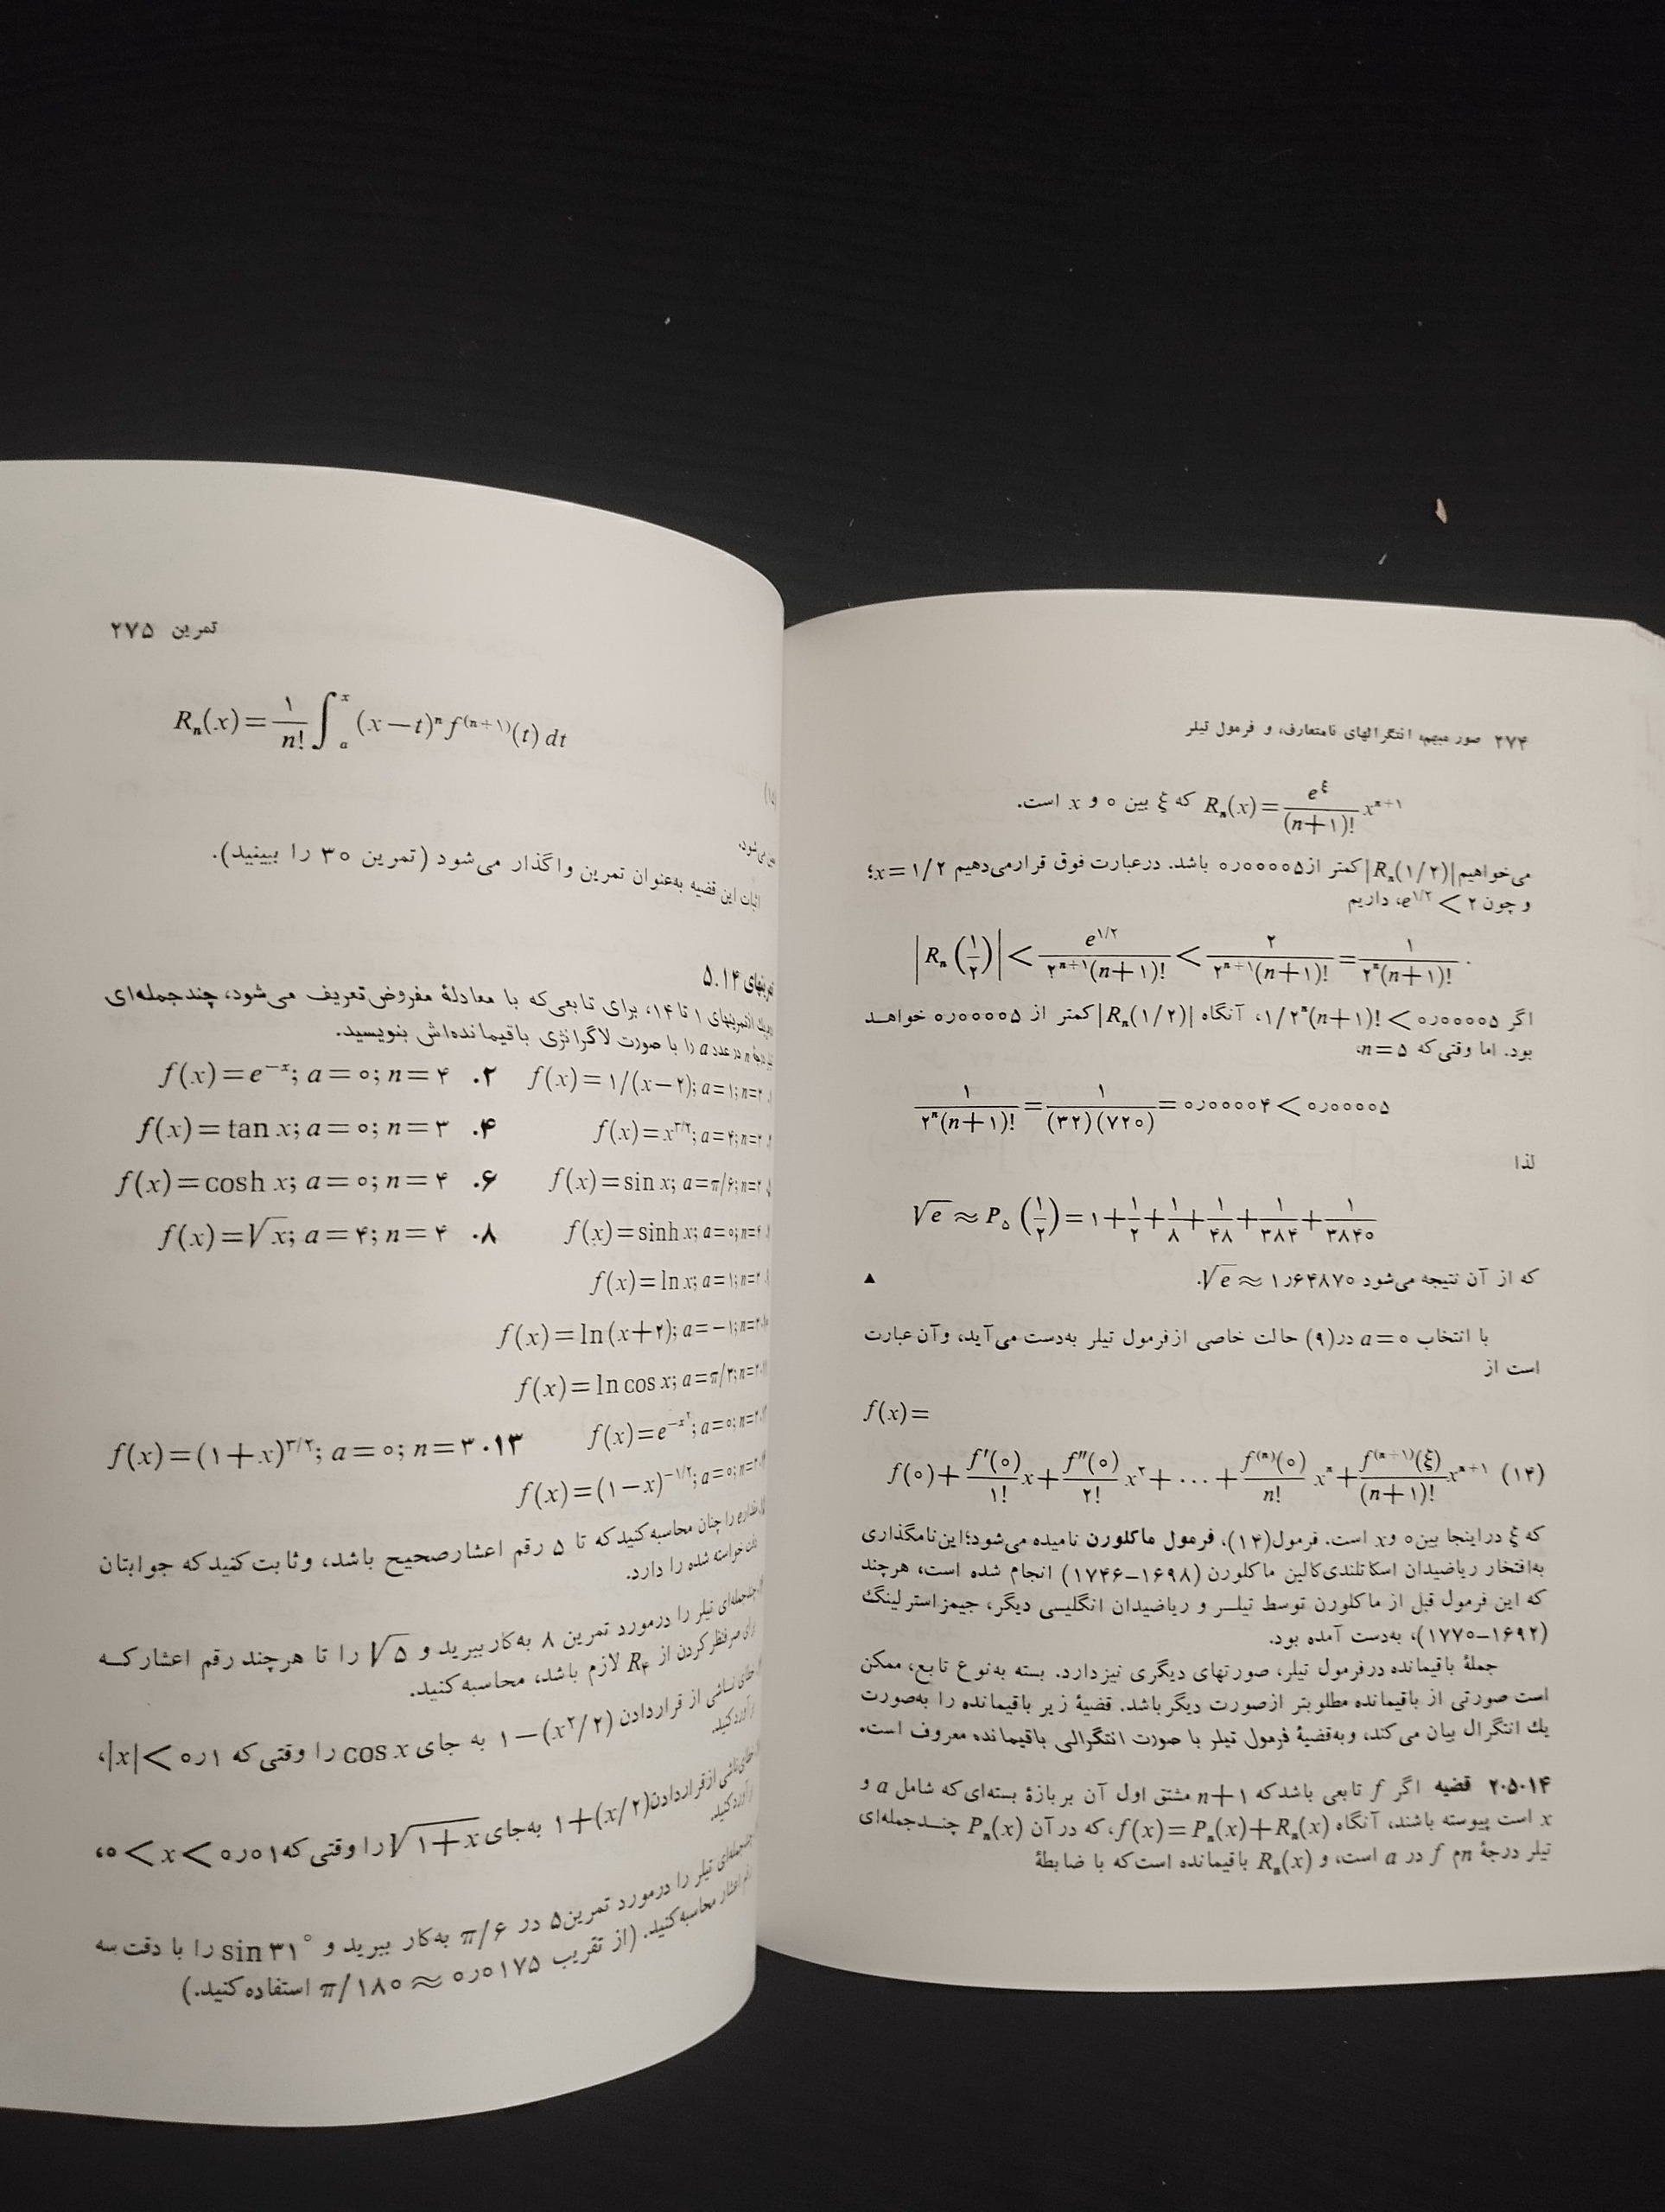 ۲۷۴ صور مبهم، انتگرالهای نامتعارف، و فرمول تیلر
R_n(x) = e^ξ/(n+۱)! x^{n+۱} که ξ بین ۰ و x است.
می‌خواهیم |R_n(۱/۲)| کمتر از ۰٫۰۰۰۰۵ باشد. درعبارت فوق قرارمی‌دهیم x = ۱/۲؛
و چون e^{۱/۲} < ۲، داریم
|R_n(۱/۲)| < e^{۱/۲}/۲^{n+۱}(n+۱)! < ۲/۲^{n+۱}(n+۱)! = ۱/۲^n(n+۱)! .
اگر ۱/۲^n(n+۱)! < ۰٫۰۰۰۰۵، آنگاه |R_n(۱/۲)| کمتر از ۰٫۰۰۰۰۵ خواهد
بود. اما وقتی که n = ۵،
۱/۲^n(n+۱)! = ۱/(۳۲)(۷۲۰) = ۰٫۰۰۰۰۴ < ۰٫۰۰۰۰۵
لذا
√e ≈ P_۵(۱/۲) = ۱ + ۱/۲ + ۱/۸ + ۱/۴۸ + ۱/۳۸۴ + ۱/۳۸۴۰
که از آن نتیجه می‌شود √e ≈ ۱٫۶۴۸۷۰. ▲
با انتخاب a = ۰ در (۹) حالت خاصی ازفرمول تیلر به‌دست می‌آید، وآن عبارت
است از
f(x) =
f(۰) + f′(۰)/۱! x + f″(۰)/۲! x^۲ + ... + f^{(n)}(۰)/n! x^n + f^{(n+۱)}(ξ)/(n+۱)! x^{n+۱} (۱۴)
که ξ دراینجا بین ۰ و x است. فرمول(۱۴)، فرمول ماکلورن نامیده می‌شود؛ این نامگذاری
به‌افتخار ریاضیدان اسکاتلندی کالین ماکلورن (۱۶۹۸–۱۷۴۶) انجام شده است، هرچند
که این فرمول قبل از ماکلورن توسط تیلر و ریاضیدان انگلیسی دیگر، جیمز استرلینگ
(۱۶۹۲–۱۷۷۰)، به‌دست آمده بود.
جملهٔ باقیمانده درفرمول تیلر، صورتهای دیگری نیز دارد. بسته به‌نوع تابع، ممکن
است صورتی از باقیمانده مطلوبتر ازصورت دیگر باشد. قضیهٔ زیر باقیمانده را به‌صورت
یك انتگرال بیان می‌کند، وبه‌قضیهٔ فرمول تیلر با صورت انتگرالی باقیمانده معروف است.
۲.۵.۱۴ قضیه اگر f تابعی باشد که n+۱ مشتق اول آن بر بازهٔ بسته‌ای که شامل a و
x است پیوسته باشند، آنگاه f(x) = P_n(x) + R_n(x)، که در آن P_n(x) چندجمله‌ای
تیلر درجهٔ nم f در a است، و R_n(x) باقیمانده است که با ضابطهٔ
تمرین ۲۷۵
R_n(x) = ۱/n! ∫_a^x (x−t)^n f^{(n+۱)}(t) dt
می‌شود.
اثبات این قضیه به‌عنوان تمرین واگذار می‌شود (تمرین ۳۰ را ببینید).
تمرینهای ۵.۱۴
ازتمرینهای ۱ تا ۱۴، برای تابعی‌که با معادلهٔ مفروض تعریف می‌شود، چندجمله‌ای
درجهٔ n در عدد a را با صورت لاگرانژی باقیمانده‌اش بنویسید.
f(x) = ۱/(x−۲); a = ۱; ۲. f(x) = e^{−x}; a = ۰; n = ۴
f(x) = x^{۳/۲}; a = ۴; ۴. f(x) = tan x; a = ۰; n = ۳
f(x) = sin x; a = π/۶; ۶. f(x) = cosh x; a = ۰; n = ۴
f(x) = sinh x; a = ۰; ۸. f(x) = √x; a = ۴; n = ۴
f(x) = ln x; a = ۱;
f(x) = ln(x+۲); a = −۱;
f(x) = ln cos x; a = π/۳;
f(x) = e^{−x^۲}; a = ۰;
۱۳. f(x) = (۱+x)^{۳/۲}; a = ۰; n = ۳
f(x) = (۱−x)^{−۱/۲}; a = ۰;
را چنان محاسبه کنید که تا ۵ رقم اعشارصحیح باشد، وثابت کنید که جوابتان
خواسته شده را دارد.
چندجمله‌ای تیلر را درمورد تمرین ۸ به‌کار ببرید و √۵ را تا هرچند رقم اعشار کـه
برای صرفنظر کردن از R_۴ لازم باشد، محاسبه کنید.
ناشی از قراردادن ۱−(x^۲/۲) به جای cos x را وقتی که |x| < ۰٫۱،
برآورد کنید.
ناشی ازقراردادن ۱+(x/۲) به‌جای √(۱+x) را وقتی که ۰ < x < ۰٫۰۱،
برآورد کنید.
تیلر را درمورد تمرین ۵ در π/۶ به‌کار ببرید و sin ۳۱° را با دقت سه
اعشار محاسبه کنید. (از تقریب π/۱۸۰ ≈ ۰٫۰۱۷۵ استفاده کنید.)